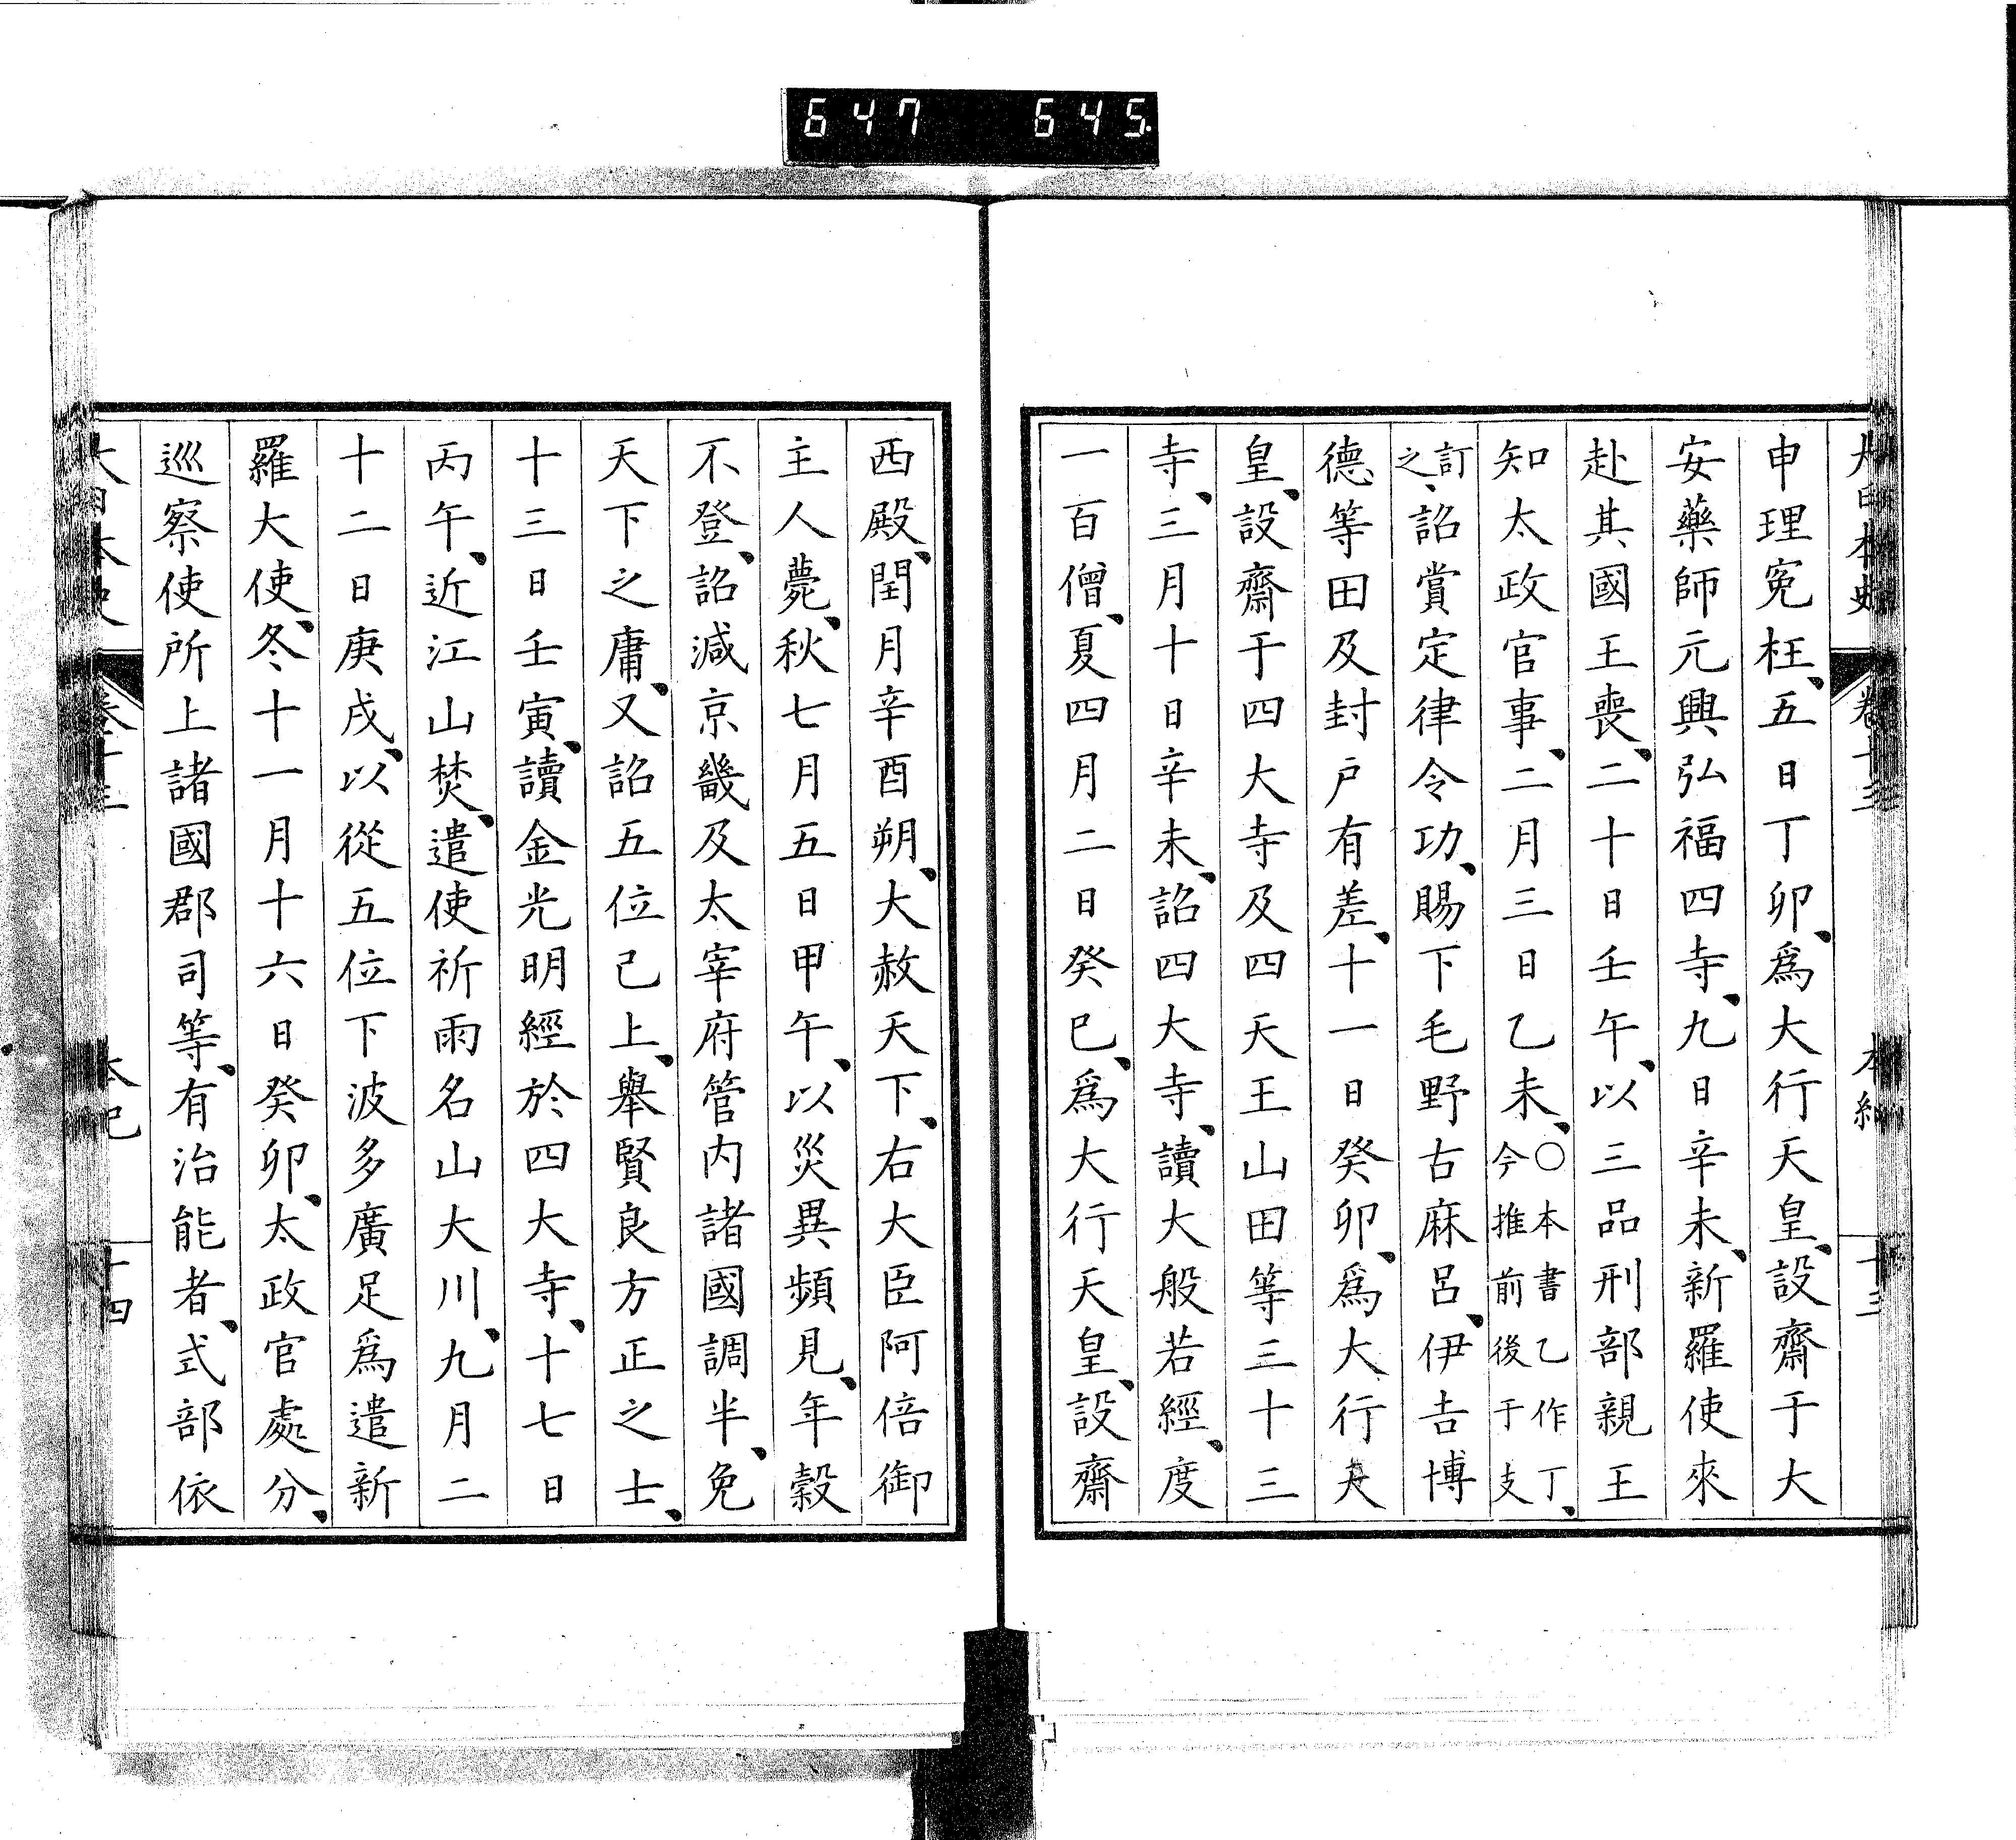 647 645
大日本史 卷十三 本紀 十三
申理冤枉、五日丁卯、爲大行天皇、設齋于大
安藥師元興弘福四寺、九日辛未、新羅使來
赴其國王喪、二十日壬午、以三品刑部親王
知太政官事、二月三日乙未、〇本書乙作丁、今推前後干支
訂之、詔賞定律令功、賜下毛野古麻呂、伊吉博
德等田及封戶有差、十一日癸卯、爲大行天
皇、設齋于四大寺及四天王山田等三十三
寺、三月十日辛未、詔四大寺、讀大般若經、度
一百僧、夏四月二日癸巳、爲大行天皇、設齋
西殿、閏月辛酉朔、大赦天下、右大臣阿倍御
主人薨、秋七月五日甲午、以災異頻見、年穀
不登、詔減京畿及太宰府管内諸國調半、免
天下之庸、又詔五位已上、舉賢良方正之士、
十三日壬寅、讀金光明經於四大寺、十七日
丙午、近江山焚、遣使祈雨名山大川、九月二
十二日庚戌、以從五位下波多廣足爲遣新
羅大使、冬十一月十六日癸卯、太政官處分、
巡察使所上諸國郡司等、有治能者、式部依
大日本史 卷十三 本紀 十四